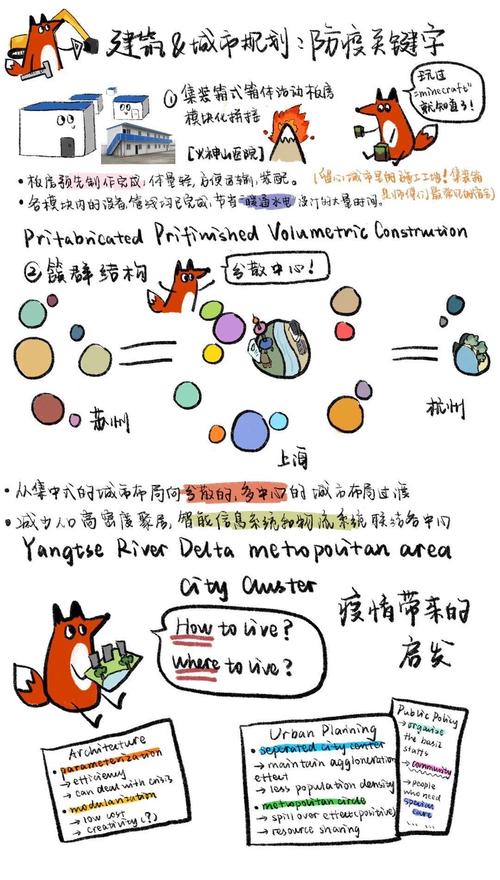 建筑&城市规划:防疫关键字
① 集装箱式箱体活动板房
模块化拼接
【火神山医院】
玩过
"minecraft"
就知道了!
• 板房预先制作完成,体量轻,方便运输,装配。
(留心城市里的施工工场!集装箱
• 各模块内的设备管线均已完成,节省暖通水电设计的大量时间。
Pritabricated Prifinished Volumetric Constrution
② 簇群结构
分散中心!
苏州
上海
杭州
• 从集中式的城市布局向分散的,多中心的城市布局过渡
• 减少人口高密度聚居,智能信息系统和物流系统联结各中心
Yangtse River Delta metropolitan area
City Cluster
疫情带来的
启发
How to live?
Where to live?
Architecture
• parameterization
→ efficiency
→ can deal with crisis
• modulanization
→ low cost
→ creativity(?)
Urban Planning
• separated city center
→ maintain agglomeration
effect
→ less population density
• metropolitan circle
→ spill over effect(positive)
→ resource sharing
Public Policy
→ organise
the basic
staffs
→ community
→ people
who need
special
care
... ...